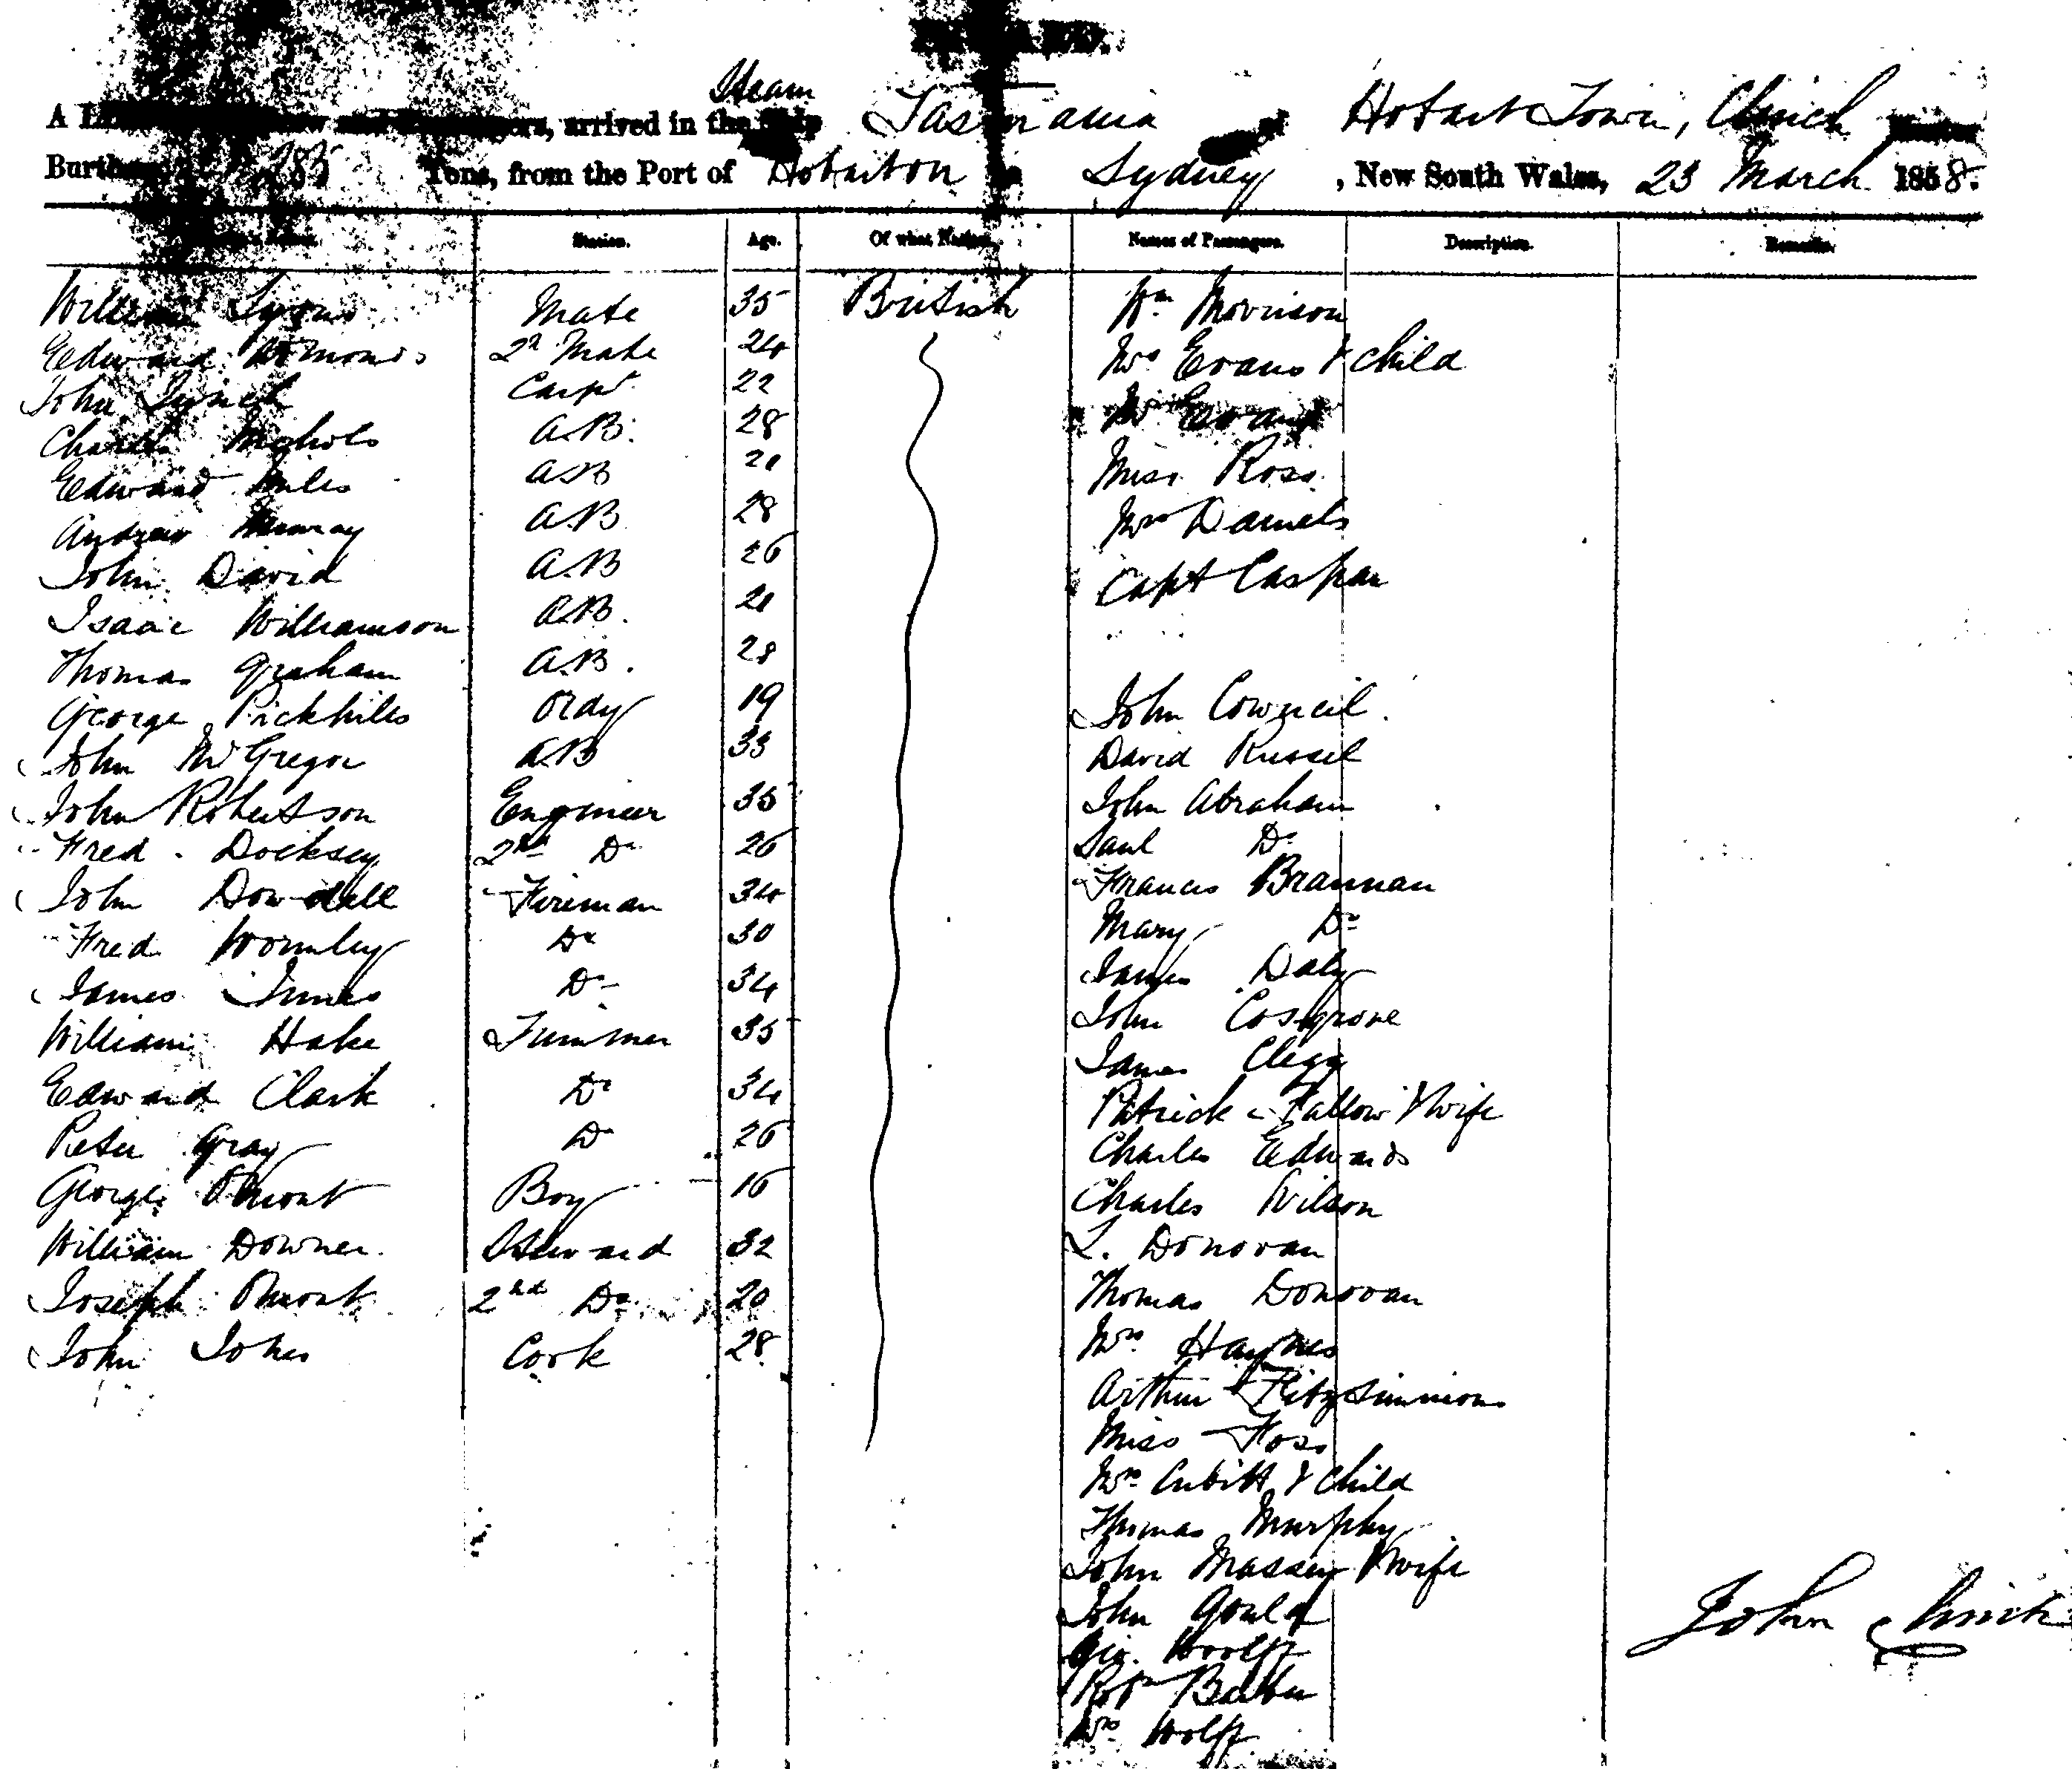 Steam
A arrived in the Ship Tasmania of Hobart Town, Clinch
Burthen 285 Tons, from the Port of Hobarton to Sydney, New South Wales, 23 March 1858.
Station. Age. Of what Nation. Names of Passengers. Description. Remarks.
William Lyons Mate 35 British Wm Morrison
Edward 2d Mate 24 Mrs Evans & child
John Lynch Carpr 22 Mr Evans
Charles Nichols A.B. 28 Miss Ross
Edward Miles A.B 21 Mrs Daniels
Andrew Murray A.B 28 Capt Caspar
John David A.B 26
Isaac Williamson A.B. 21
Thomas Graham A.B. 28
George Pickhiles Ordy 19 John Council.
John McGregor A.B 33 David Russel
John Robertson Engineer 35 John Abraham
Fred. Docksey 2nd Do 26 Saul Do
John Dowdell Fireman 34 Francis Brannan
Fred Wormley Do 30 Mary Do
James Innes Do 34 James Daly
William Hake Trimmer 35 John Cosgrove
Edward Clark Do 34 James Clegg
Peter Gray Do 26 Patrick Fallow & wife
George Boy 16 Charles Edwards
William Downer. Steward 32 Charles Wilson
Joseph 2nd Do 20 L. Donovan
John Jones Cook 28 Thomas Donovan
Mrs Haynes
Arthur Fitzsimmons
Miss Foss
Mrs Cubitt & Child
Thomas Murphy
John Massey & wife
John Gould
Geo. Woolff
Robt
Mrs Wolff
John Clinch